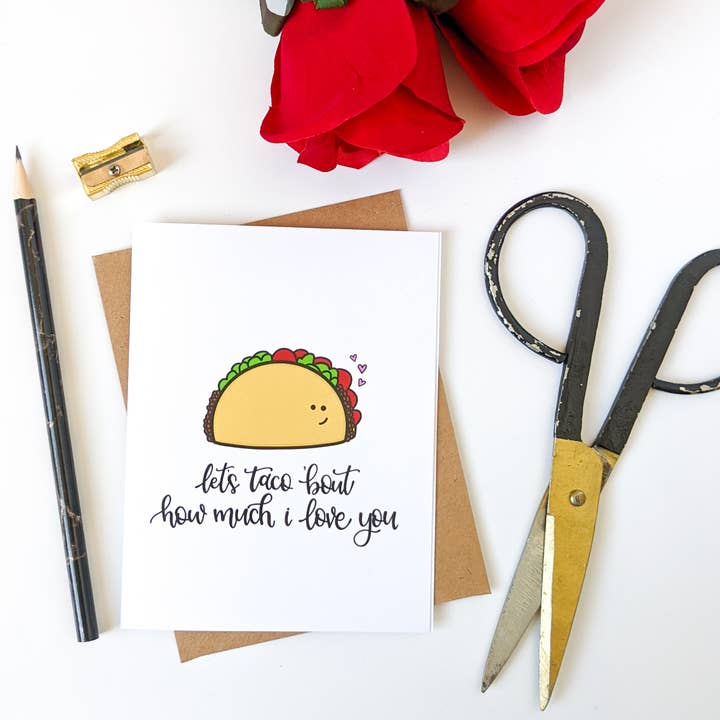 let's taco 'bout
how much i love you